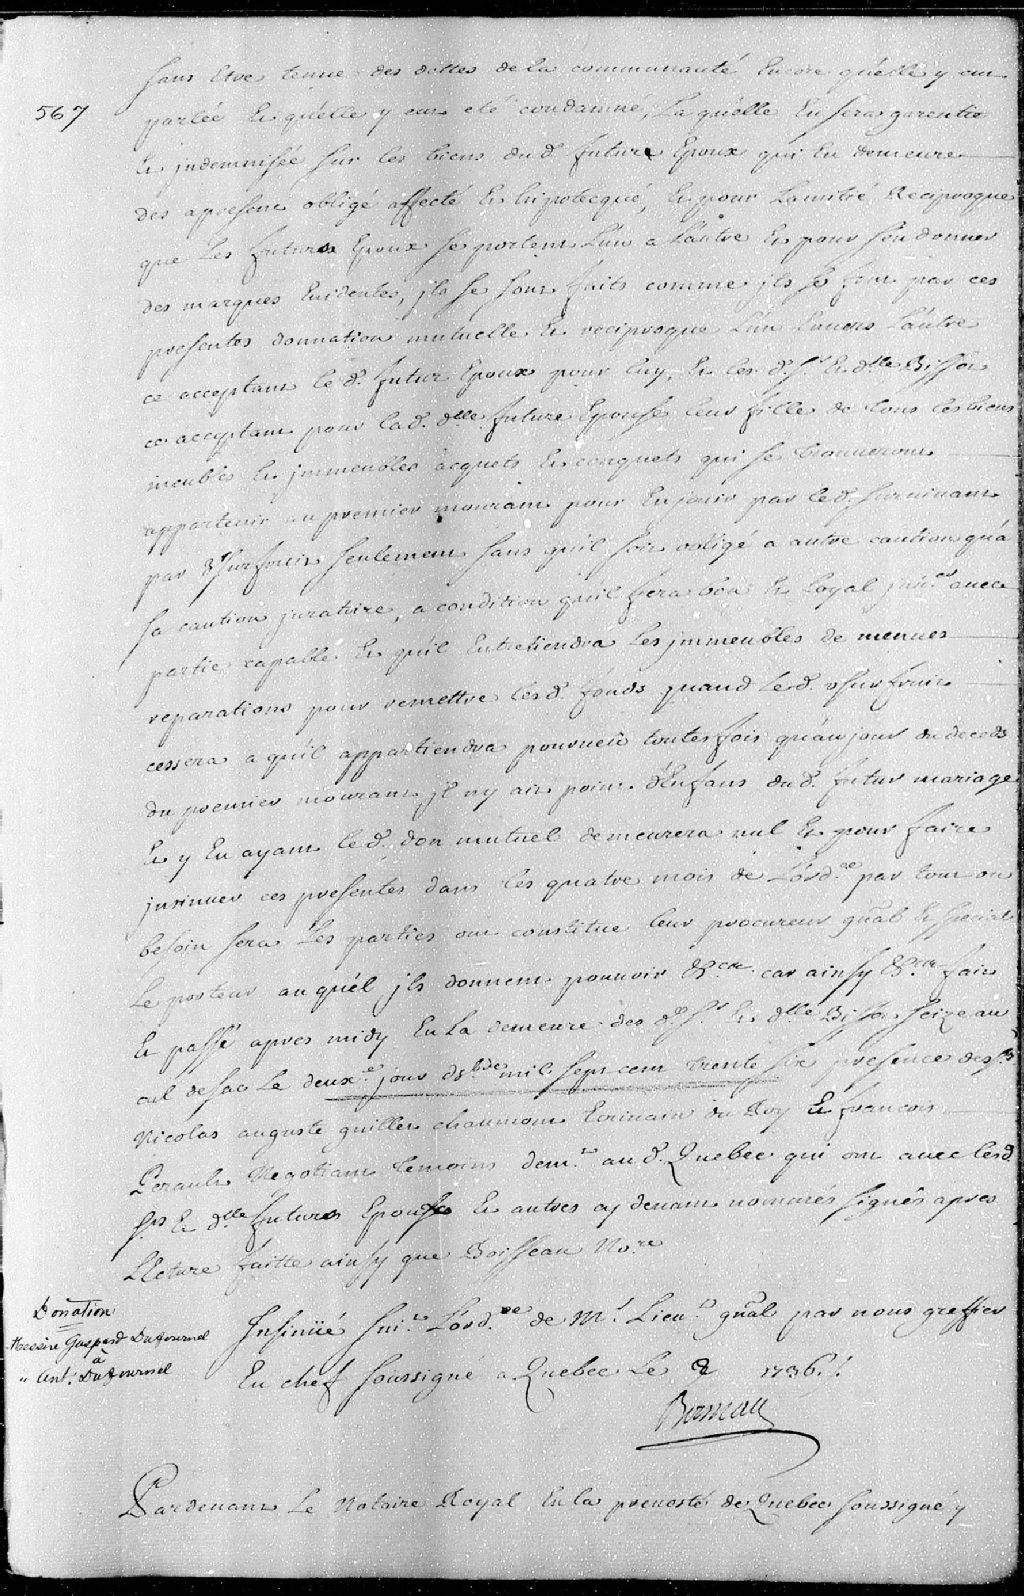 567
sans Etre tenue des dettes de la communauté Encore quélle y eut
parlée Et quélle y eut eté condamné, Laquélle En sera garentie
Et jndemnisée sur les biens du d. futur Epoux qui En demeure
des apresent obligé affecté Et hipotecqué, Et pour Lamitié Reciproque
que Les futurs Epoux se portent L'un a Láutre Et pour s'en donner
des marques Evidentes, jls se sont faits comme jls se font par ces
presentes donnation mutuelle Et reciproque L'un Envers Láutre
ce acceptant le d. futur Epoux pour luy, Et les d. Sr. Et dlle Bisson
ce acceptant pour la d. dlle. future Epouse leur fille de tous les biens
meubles Et jmmeubles acquets Et conquets qui se trouveront
appartenir au premier mourant pour En jouir par le d. survivant
par Usufruit seulement sans quil soit obligé a autre caution quá
sa caution juratoire, a condition quil fera bon Et Loyal jnv.re avec
partie capable Et quíl Entretiendra Les jmmeubles de menues
reparations pour remettre les d. fonds quand le d. usufruit
cessera a quíl appartiendra pourveu toutesfois quáu jour du deceds
du premier mourant jl ny ait point d'Enfans du d. futur mariage
Et y En ayant le d. don mutuel demeurera nul Et pour faire
jnsinuer ces presentes dans les quatre mois de Lórd.ce par tout ou
besoin sera Les parties ont constitue leur procureur gñal Et special
Le porteur auquél jls donnent pouvoir &.ca. car ainsy &.ca fait
Et passé apres midy En La demeure des d. Sr. Et dlle Bisson seize au
cul de sac Le deux.e jour d8bre mil sept cent trente six presence des Srs
Nicolas auguste guillet chaumont Ecrivain du Roy Et francois
Perault Negotiant temoins dem.ts au d. Quebec qui ont avec les d.
Srs Et dlle futurs Epouse Et autres cy devant nommés signés apres
Lecture faitte ainsy que Boisseau No.re
Donation
Messire Gaspard Dufournel
à
" Ant. Dufournel
Insinüé suiv.t Lórd.ce de Mr. Lieu.t gñal par nous greffier
En chef soussigné a Quebec Le 1736./.
Boisseau
Pardevant Le Notaire Royal En la prevosté de Quebec soussigné y